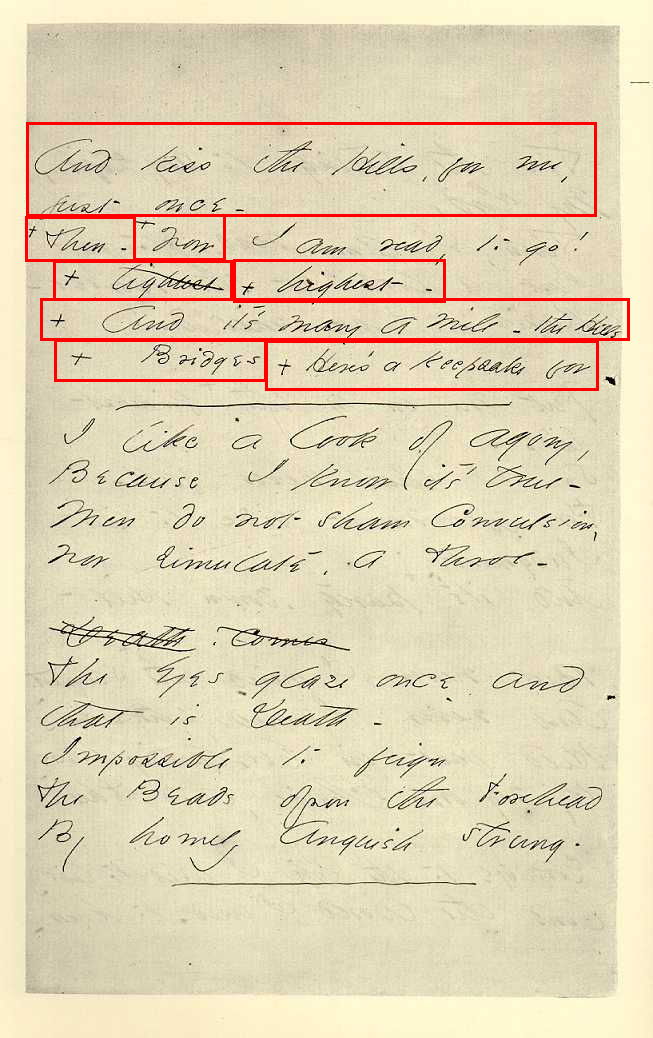 And kiss the Hills, for me,
just once -
+ Then - + now I am ready to go!
+ tightest + highest -
+ And it's many a mile - the Hills
+ Bridges + Here's a keepsake for
I like a look of agony,
Because I know it's true -
Men do not sham Convulsion,
Nor simulate, a throe -
Death, comes
The Eyes glaze once and
that is Death -
Impossible to feign
The Beads upon the Forehead
By homely Anguish strung.